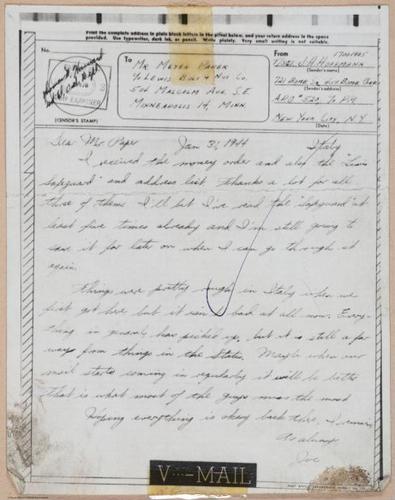 Print the complete address in plain block letters in the panel below, and your return address in the space
provided. Use typewriter, dark ink, or pencil. Write plainly. Very small writing is not suitable.
No.
To
Mr. Meyer Paper
% Lewis Bolt & Nut Co.
504 Malcolm Ave. S.E.
Minneapolis 14, Minn.
From
J.H.
(Sender's name)
721 Bomb Sq. 450 Bomb Group
(Sender's address)
APO # 520, % P.M.
New York City, N.Y.
(Date)
(CENSOR'S STAMP)
Dear Mr. Paper Jan. 31, 1944 Italy
I received the money order and also the "Lewis
Safeguard" and address list. Thanks a lot for all
three of them. I'll bet I've read the "Safeguard" at
least five times already and I'm still going to
save it for later on when I can go through it
again.
Things were pretty rough in Italy when we
first got here but it isn't bad at all now. Every-
thing in general has picked up, but it is still a far
ways from things in the States. Maybe when our
mail starts coming in regularly it will be better
that is what most of the guys miss the most
Hoping everything is okay back there, I remain
As always
Joe
V···—MAIL